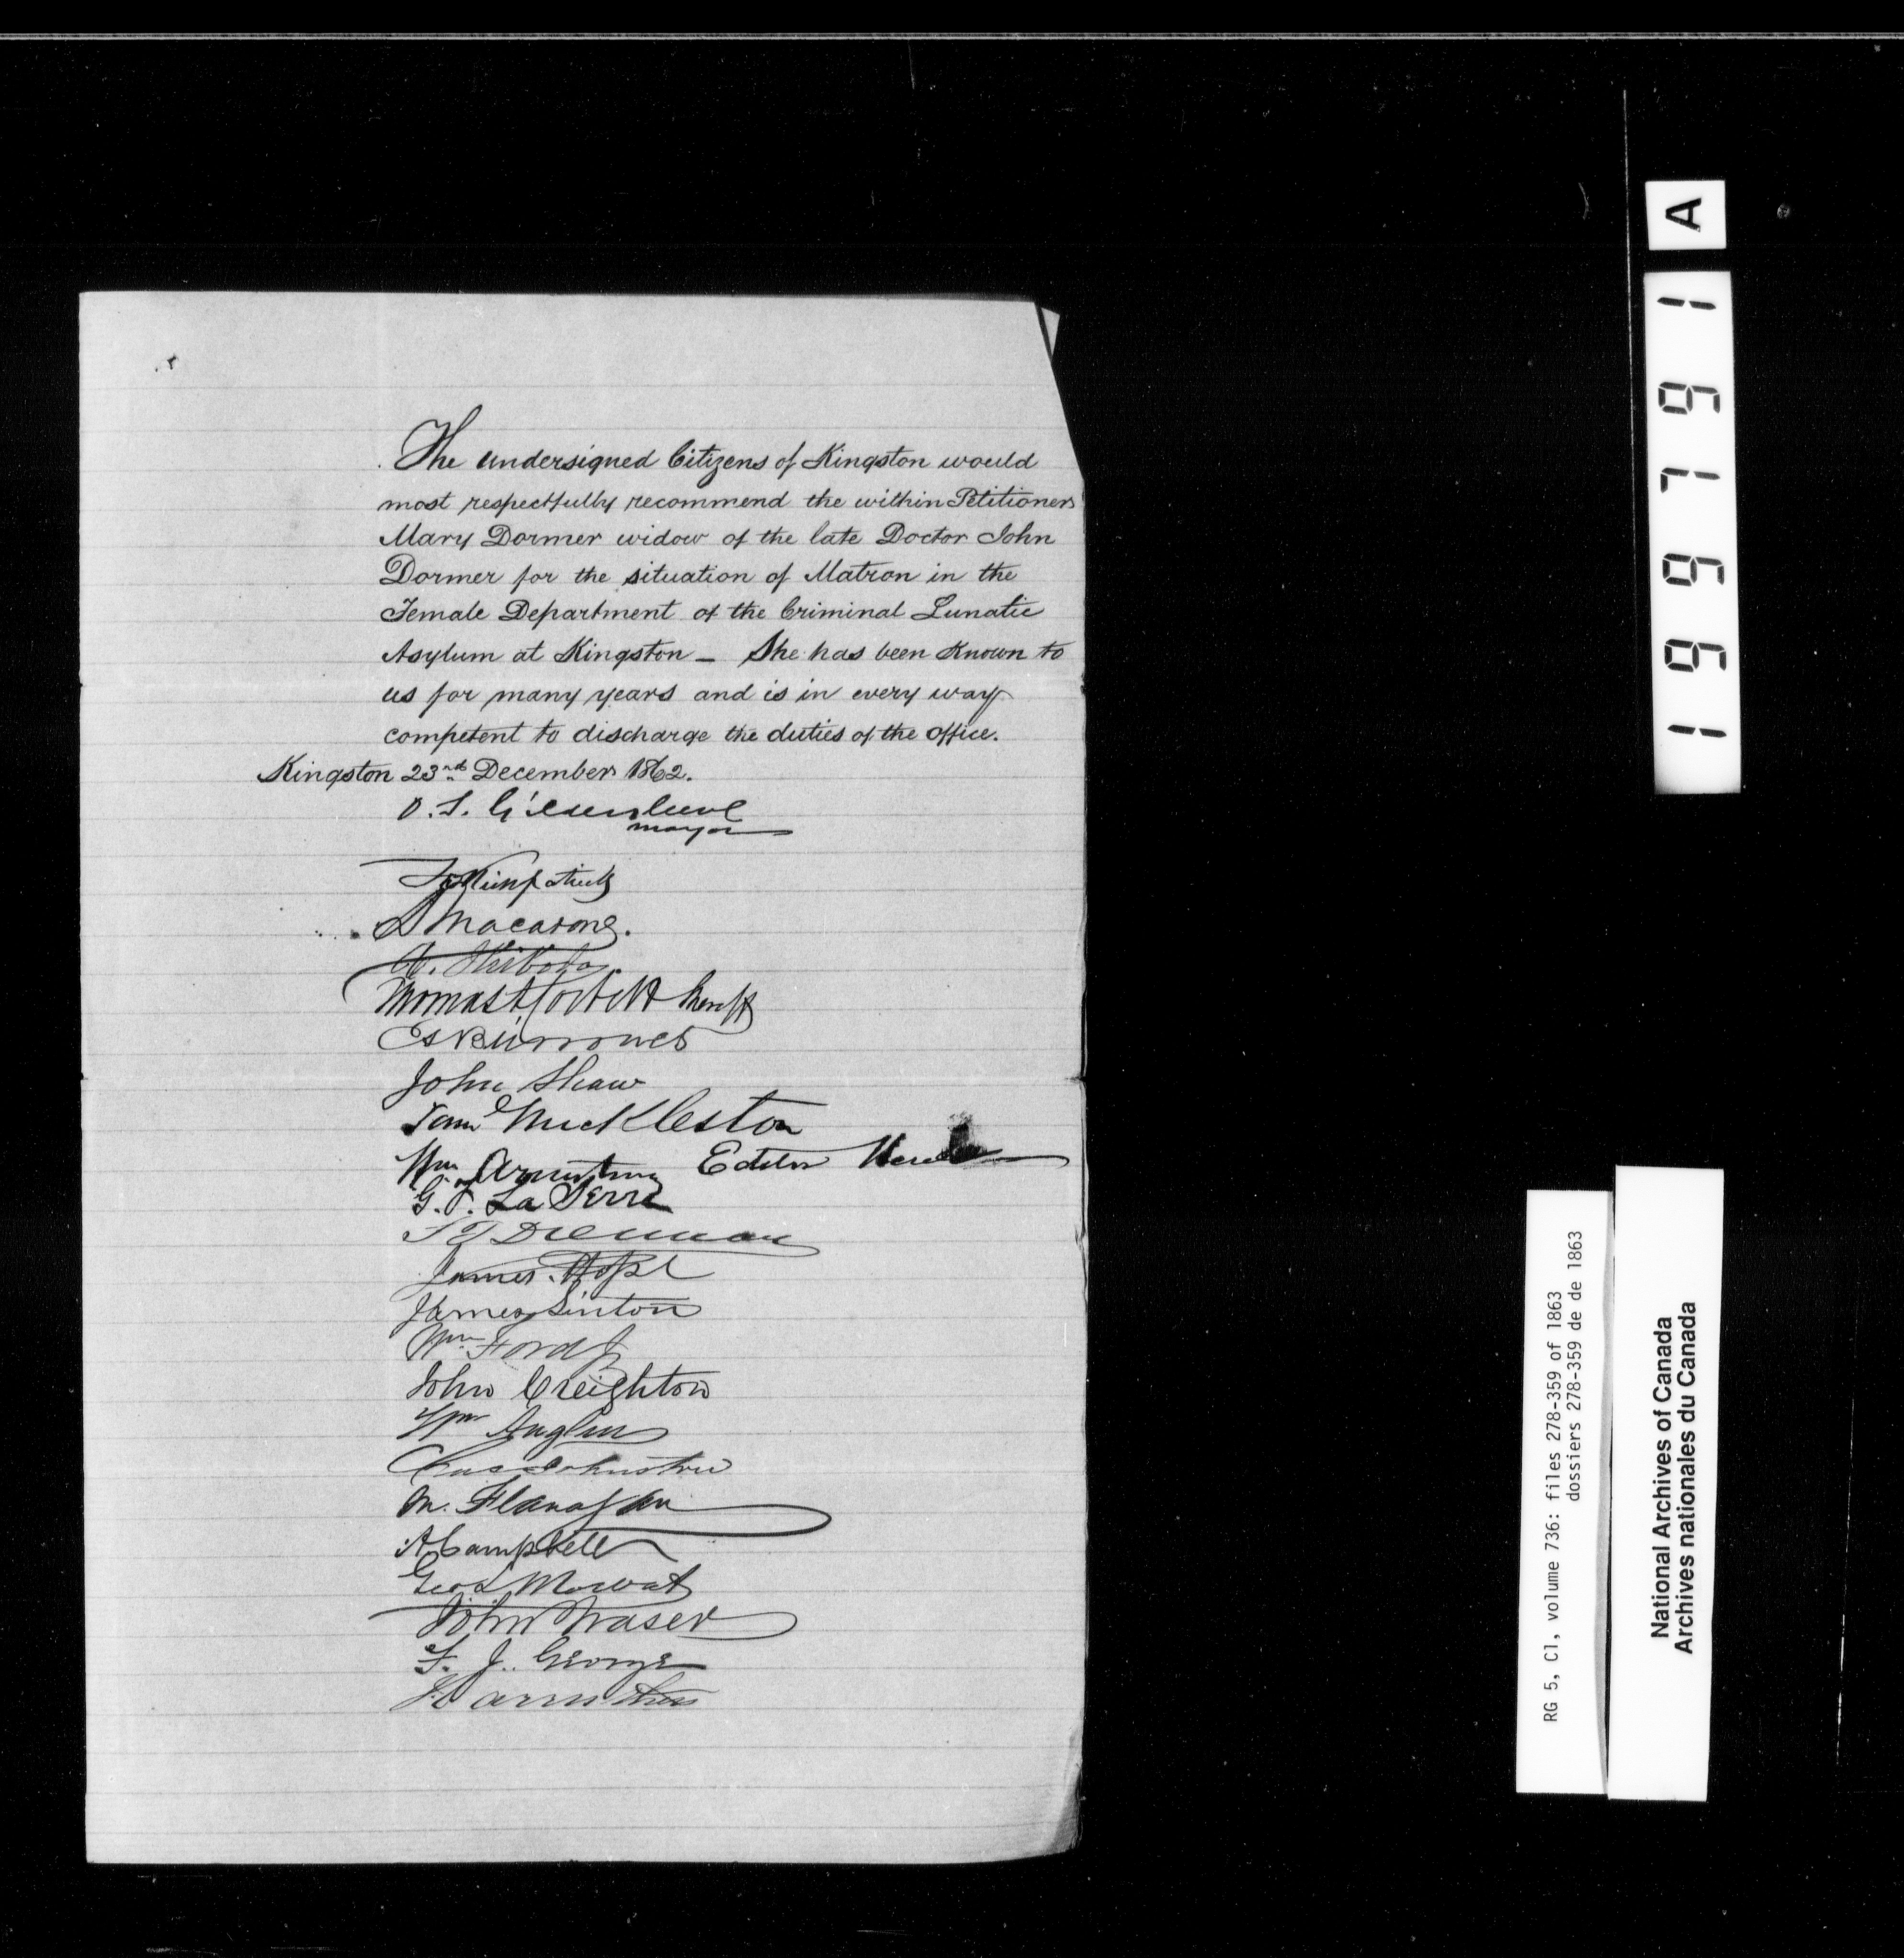 The undersigned Citizens of Kingston would
most respectfully recommend the within Petitioner
Mary Dormer widow of the late Doctor John
Dormer for the situation of Matron in the
Female Department of the Criminal Lunatic
Asylum at Kingston – She has been Known to
us for many years and is in every way
competent to discharge the duties of the office.
Kingston 23nd December 1862.
O. S. Gildersleeve
mayor
Kirkpatrick
D Macarow.
Thibodo
Thomas A Corbett Sheriff
John Shaw
Saml Muckleston
Wm Armstrong Editor
G. F. La Serre
S T Drennan
James Hope
James Linton
Wm Ford Jr
John Creighton
Wm Anglin
Chas Johnston
M. Flanagan
A Campbell
Geo L Mowat
John Fraser
F. J. George
J Carruthers
A
1991791
RG 5, C1, volume 736: files 278-359 of 1863
dossiers 278-359 de de 1863
National Archives of Canada
Archives nationales du Canada